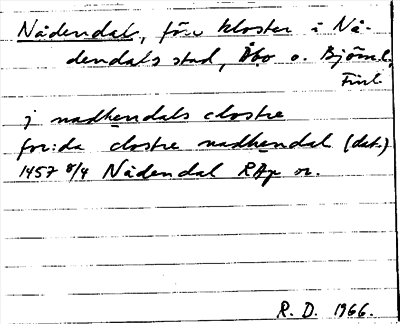 Nådendal, f.ö.v kloster i Nå-
dendals stad, Åbo o. Björneb.
Finl.
j nadhendals clostre
for:da clostre nadhendal (dat.)
1457 8/4 Nådendal RAp or.
R. D. 1966.